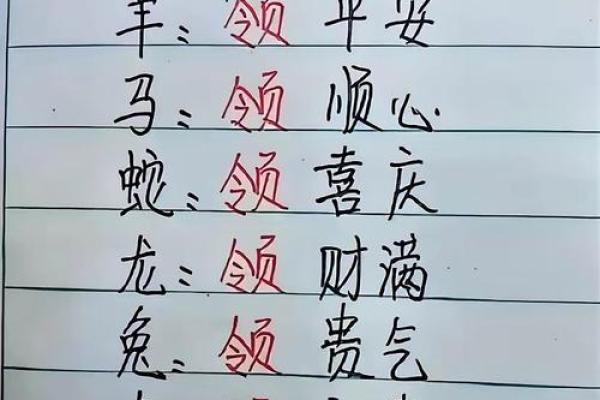 羊：领平安
马：领顺心
蛇：领喜庆
龙：领财满
兔：领贵气